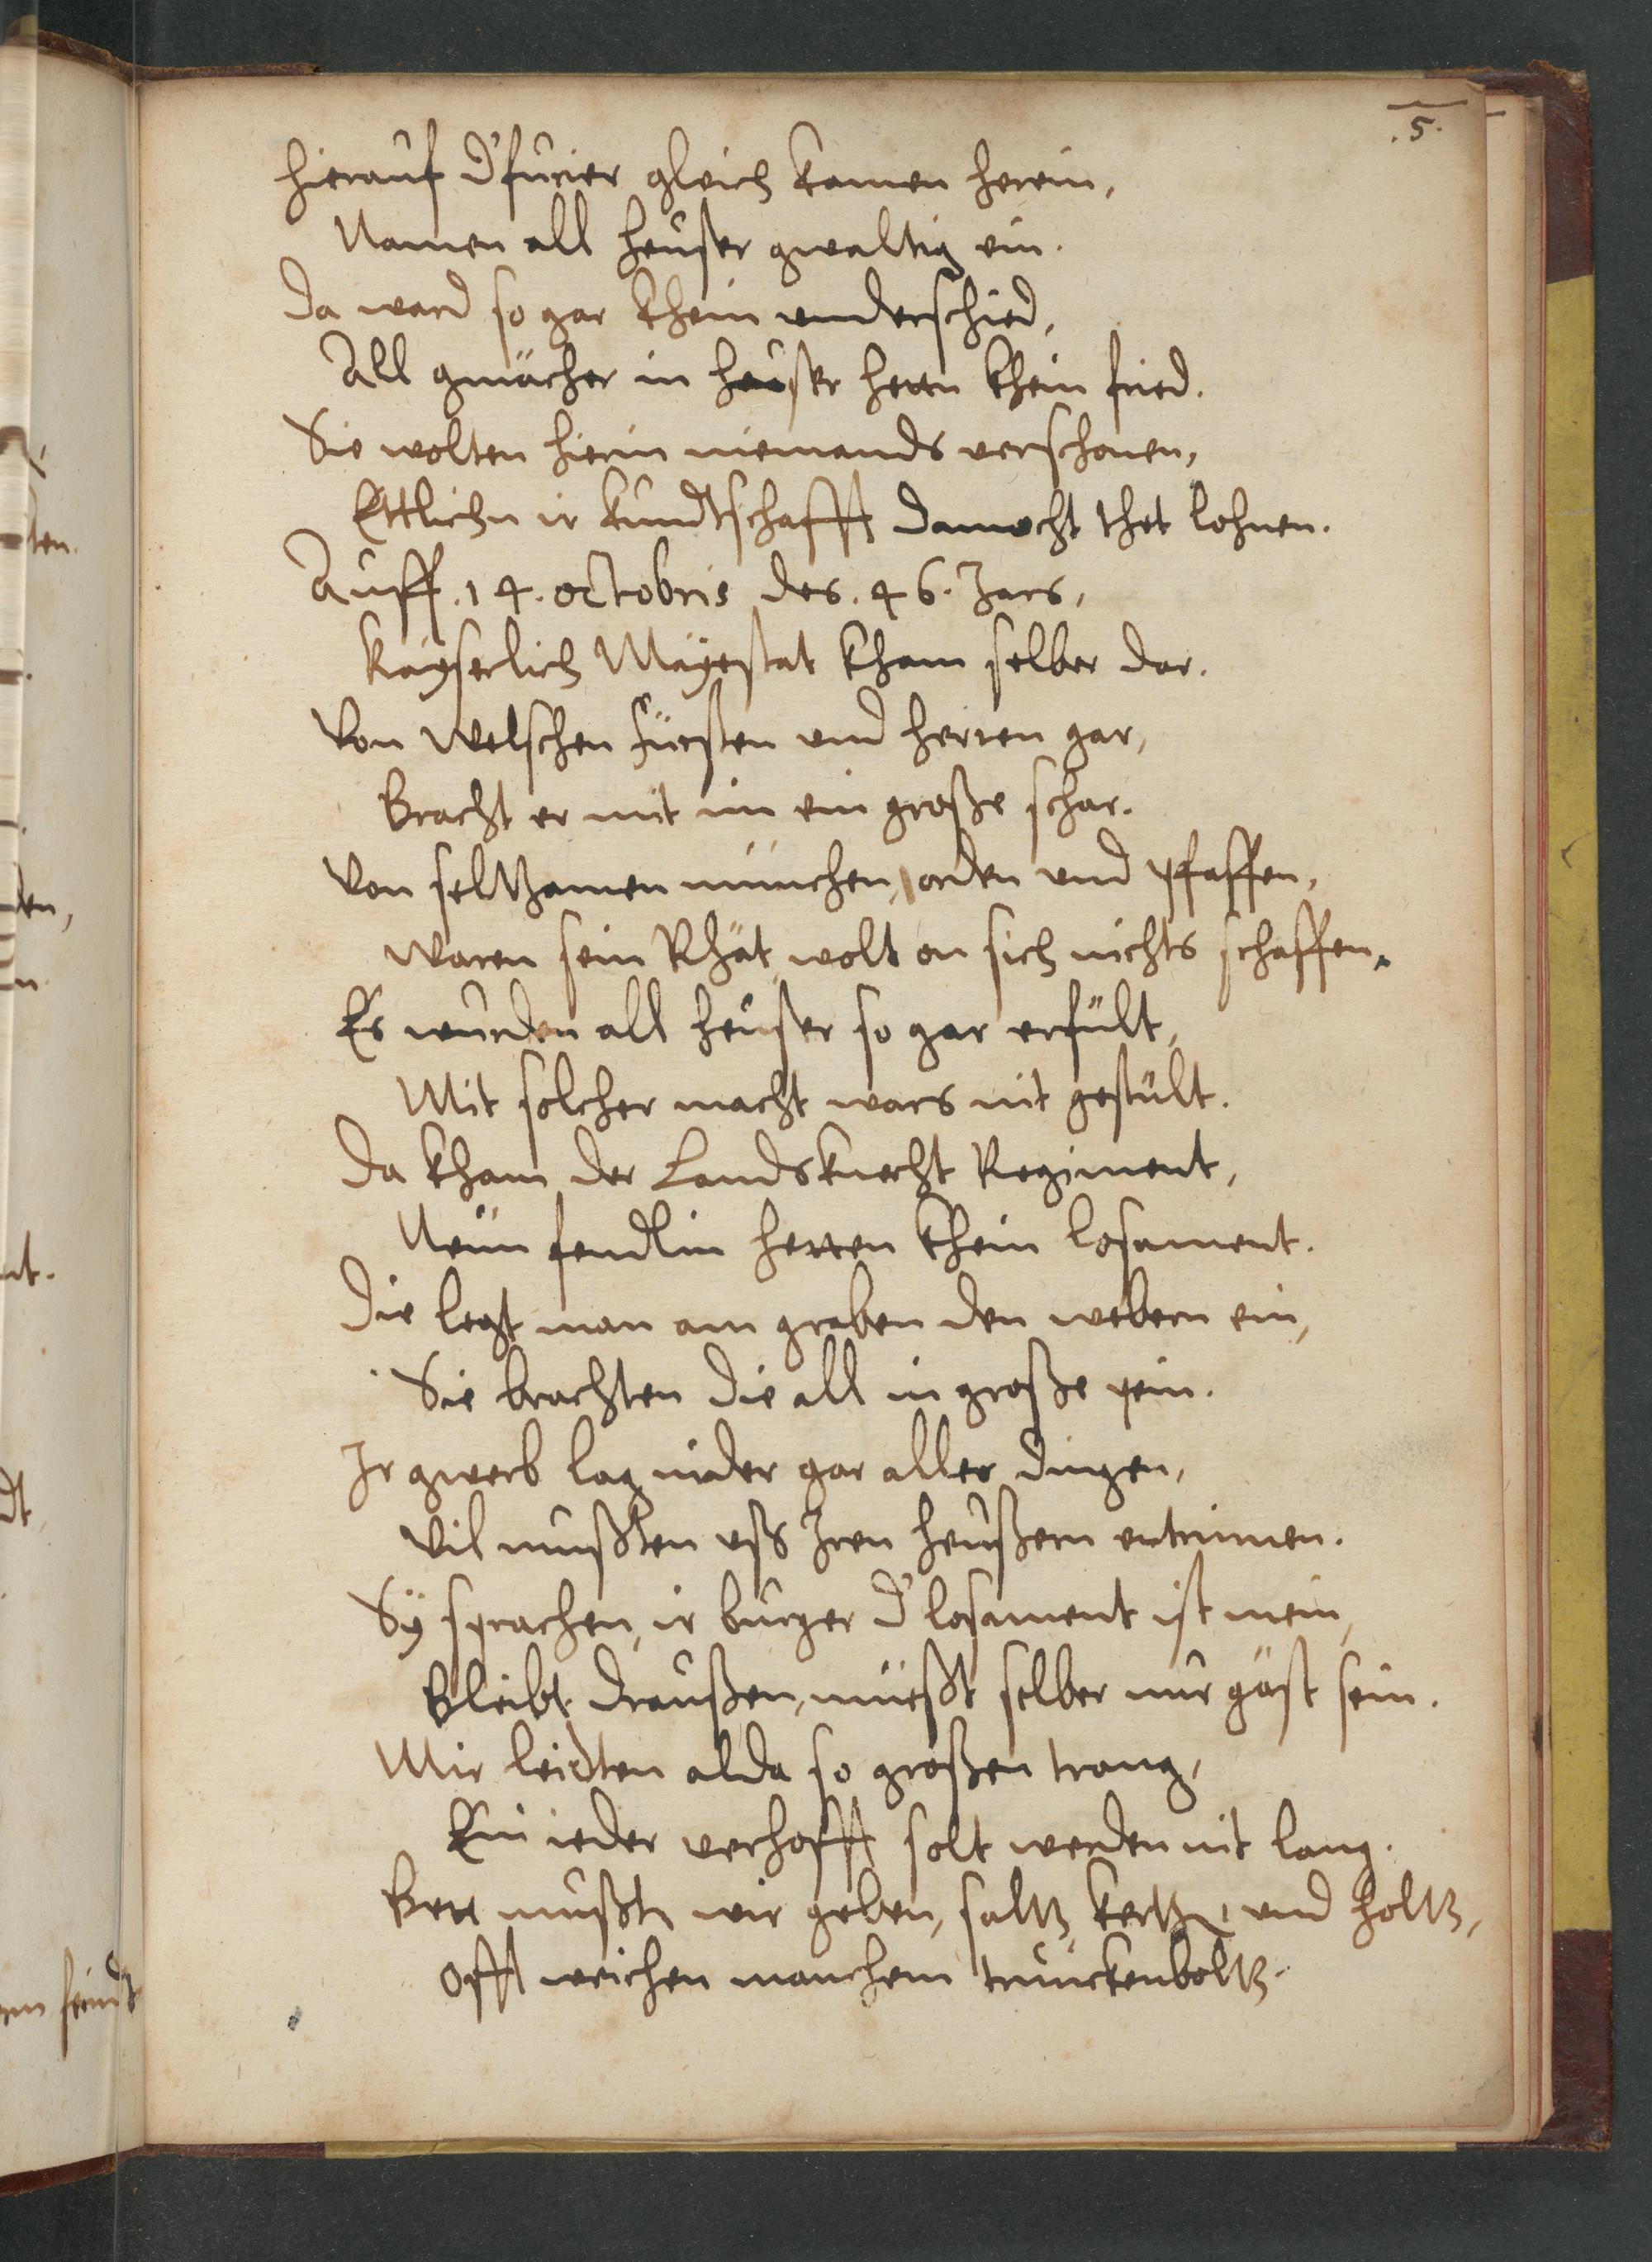 .5.
Hierauf d'furier gleich kamen herein,
Namen all heuser gwaltig ein.
Da ward so gar khein underschied,
All gmächer in heuser hetten khein fried.
Sie wolten hierin niemands verschonen,
Ettlichen ir kundtschafft dannocht thet lohnen.
Auff .14. octobris des .46. Jars,
Kayserlich Mayestat kham selber dar.
Von welschen fürsten und herren gar,
Bracht er mit im ein große schar.
Von seltzamen münchen, orden und pfaffen,
Waren sein Rhät, wolt on sich nichts schaffen.
Es wurden all heuser so gar erfült,
Mit solcher macht wars nit gestült.
Da kham der Landsknecht Regiment,
Neün fendlin hetten khein losament.
Die legt man am graben den webern ein,
Sie brachten die all in große pein.
Ir gwerb lag nider gar aller dingen,
Vil mußten uß Iren heusern entrinnen.
Sÿ sprachen, ir burger d'losament ist mein,
Bleibt draußen, müeßt selber nur gäst sein.
Mir leidten alda so großen trang,
Ein ieder verhofft solt werden nit lang.
Bett mußten wir geben, saltz, kertzen, und holtz,
Offt weichen manchem trunckenboltz.
ten.
den,
nt.
dt
feindt